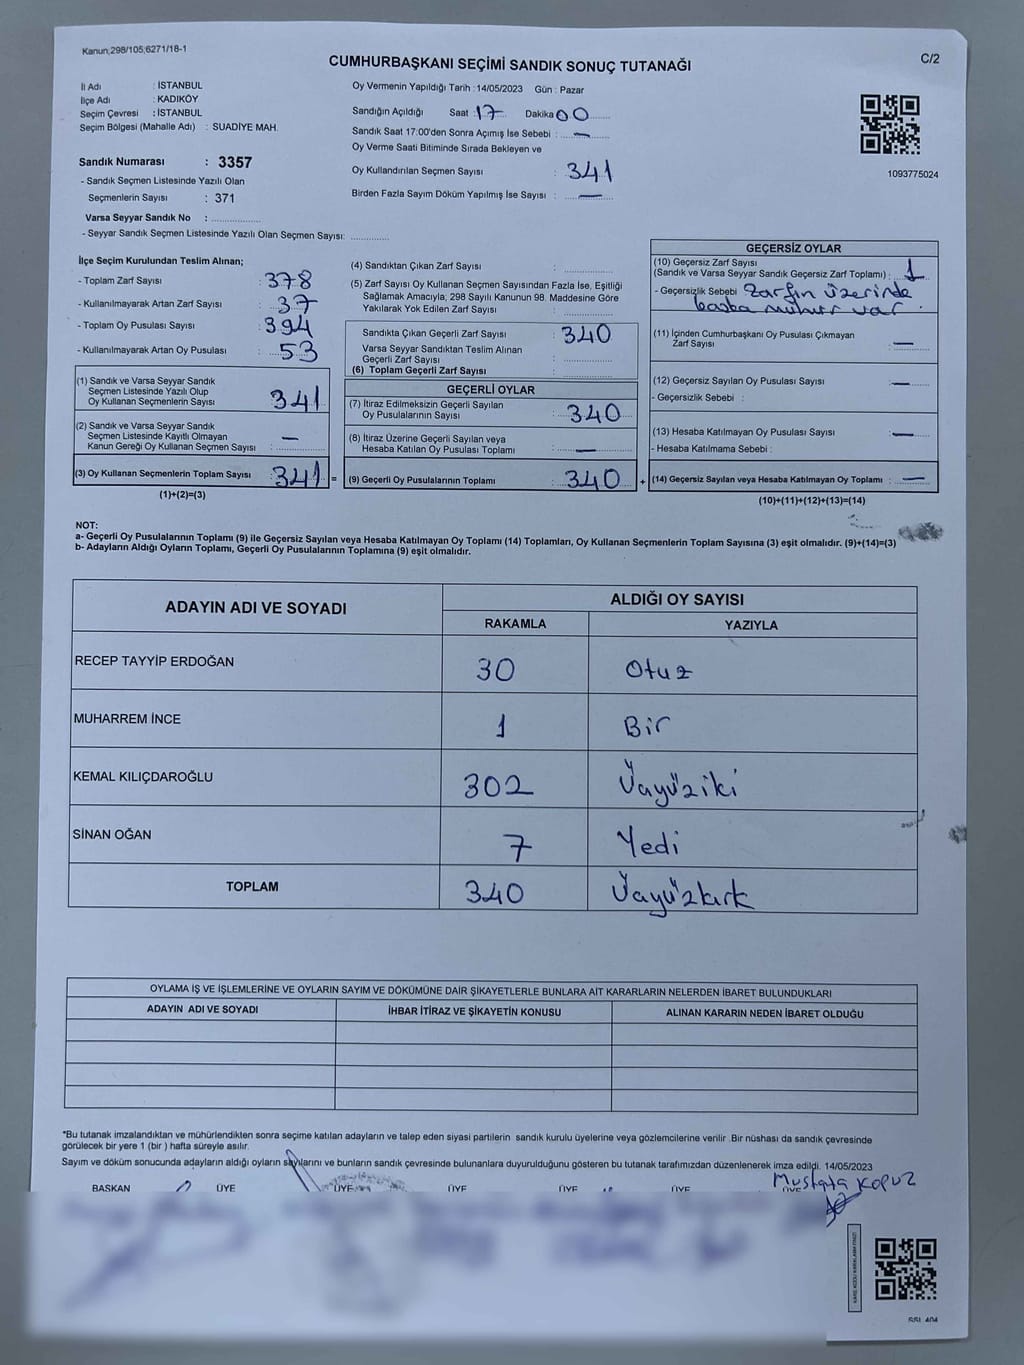 Kanun;298/105;6271/18-1
C/2
CUMHURBAŞKANI SEÇİMİ SANDIK SONUÇ TUTANAĞI
İl Adı : İSTANBUL
İlçe Adı : KADIKÖY
Seçim Çevresi : İSTANBUL
Seçim Bölgesi (Mahalle Adı) : SUADİYE MAH.
Sandık Numarası : 3357
- Sandık Seçmen Listesinde Yazılı Olan
Seçmenlerin Sayısı : 371
Varsa Seyyar Sandık No : ..............
- Seyyar Sandık Seçmen Listesinde Yazılı Olan Seçmen Sayısı: ............
Oy Vermenin Yapıldığı Tarih : 14/05/2023 Gün : Pazar
Sandığın Açıldığı Saat : 17 Dakika 00
Sandık Saat 17:00'den Sonra Açımış İse Sebebi : —
Oy Verme Saati Bitiminde Sırada Bekleyen ve
Oy Kullandırılan Seçmen Sayısı : 341
Birden Fazla Sayım Döküm Yapılmış İse Sayısı : —
1093775024
İlçe Seçim Kurulundan Teslim Alınan;
- Toplam Zarf Sayısı : 378
- Kullanılmayarak Artan Zarf Sayısı : 37
- Toplam Oy Pusulası Sayısı : 394
- Kullanılmayarak Artan Oy Pusulası : 53
(1) Sandık ve Varsa Seyyar Sandık
Seçmen Listesinde Yazılı Olup
Oy Kullanan Seçmenlerin Sayısı : 341
(2) Sandık ve Varsa Seyyar Sandık
Seçmen Listesinde Kayıtlı Olmayan
Kanun Gereği Oy Kullanan Seçmen Sayısı : —
(3) Oy Kullanan Seçmenlerin Toplam Sayısı : 341 =
(1)+(2)=(3)
(4) Sandıktan Çıkan Zarf Sayısı : ............
(5) Zarf Sayısı Oy Kullanan Seçmen Sayısından Fazla İse, Eşitliği
Sağlamak Amacıyla; 298 Sayılı Kanunun 98. Maddesine Göre
Yakılarak Yok Edilen Zarf Sayısı : ............
Sandıkta Çıkan Geçerli Zarf Sayısı : 340
Varsa Seyyar Sandıktan Teslim Alınan
Geçerli Zarf Sayısı : ............
(6) Toplam Geçerli Zarf Sayısı : ............
GEÇERLİ OYLAR
(7) İtiraz Edilmeksizin Geçerli Sayılan
Oy Pusulalarının Sayısı : 340
(8) İtiraz Üzerine Geçerli Sayılan veya
Hesaba Katılan Oy Pusulası Toplamı : —
(9) Geçerli Oy Pusulalarının Toplamı : 340 +
GEÇERSİZ OYLAR
(10) Geçersiz Zarf Sayısı
(Sandık ve Varsa Seyyar Sandık Geçersiz Zarf Toplamı) : 1
- Geçersizlik Sebebi : Zarfın üzerinde
başka mühür var .
(11) İçinden Cumhurbaşkanı Oy Pusulası Çıkmayan
Zarf Sayısı : —
(12) Geçersiz Sayılan Oy Pusulası Sayısı : —
- Geçersizlik Sebebi :
(13) Hesaba Katılmayan Oy Pusulası Sayısı : —
- Hesaba Katılmama Sebebi :
(14) Geçersiz Sayılan veya Hesaba Katılmayan Oy Toplamı : —
(10)+(11)+(12)+(13)=(14)
NOT:
a- Geçerli Oy Pusulalarının Toplamı (9) ile Geçersiz Sayılan veya Hesaba Katılmayan Oy Toplamı (14) Toplamları, Oy Kullanan Seçmenlerin Toplam Sayısına (3) eşit olmalıdır. (9)+(14)=(3)
b- Adayların Aldığı Oyların Toplamı, Geçerli Oy Pusulalarının Toplamına (9) eşit olmalıdır.
ADAYIN ADI VE SOYADI ALDIĞI OY SAYISI
RAKAMLA YAZIYLA
RECEP TAYYİP ERDOĞAN 30 Otuz
MUHARREM İNCE 1 Bir
KEMAL KILIÇDAROĞLU 302 Üçyüziki
SİNAN OĞAN 7 Yedi
TOPLAM 340 Üçyüzkırk
OYLAMA İŞ VE İŞLEMLERİNE VE OYLARIN SAYIM VE DÖKÜMÜNE DAİR ŞİKAYETLERLE BUNLARA AİT KARARLARIN NELERDEN İBARET BULUNDUKLARI
ADAYIN ADI VE SOYADI İHBAR İTİRAZ VE ŞİKAYETİN KONUSU ALINAN KARARIN NEDEN İBARET OLDUĞU
*Bu tutanak imzalandıktan ve mühürlendikten sonra seçime katılan adayların ve talep eden siyasi partilerin sandık kurulu üyelerine veya gözlemcilerine verilir .Bir nüshası da sandık çevresinde
görülecek bir yere 1 (bir ) hafta süreyle asılır.
Sayım ve döküm sonucunda adayların aldığı oyların sayılarını ve bunların sandık çevresinde bulunanlara duyurulduğunu gösteren bu tutanak tarafımızdan düzenlenerek imza edildi. 14/05/2023
Mustafa Kopuz
BAŞKAN ÜYE ÜYE ÜYE ÜYE ÜYE ÜYE